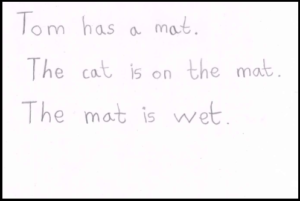 Tom has a mat.
The cat is on the mat.
The mat is wet.